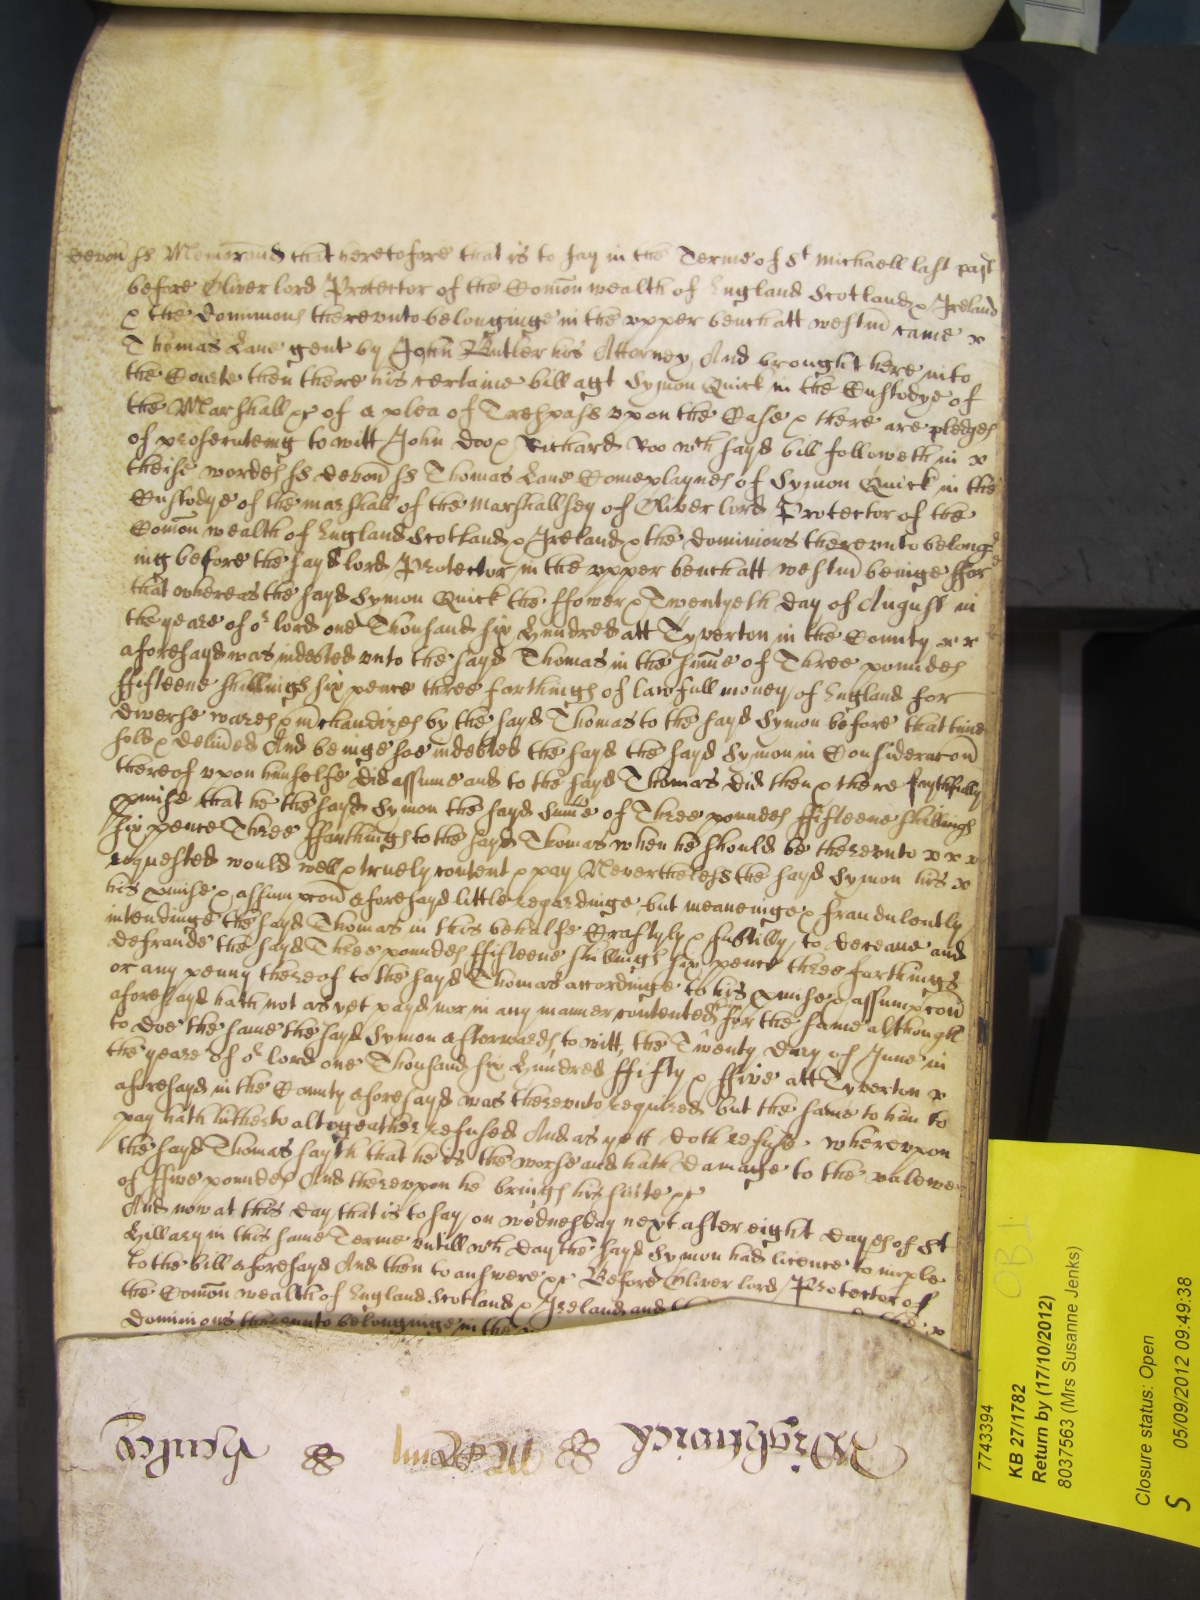 Devon ss Memorand that heretofore that is to say in the Terme of St Michaell last past
before Oliver lord Protector of the Comon wealth of England Scotland & Ireland
& the Dominions therevnto belonginge in the vpper bench att westm came x
Thomas Lane gent by John Butler his Attorney And brought here into
the Courte then there his certaine bill agt Symon Quick in the Custodye of
the Marshall &c of a plea of Trespass vpon the Case & there are pledges
of prosecuteing to witt John Doo & Richard Roo wch sayd bill followeth in x
theise wordes ss Devon ss Thomas Lane Complaynes of Symon Quick in the
Custodye of the marshall of the Marshallsey of Oliver lord Protector of the
Comon wealth of England Scotland & Ireland & the dominions therevnto belong
ing before the sayd lord Protector in the vpper bench att westm beinge ffor
that whereas the sayd Symon Quick the ffower & Twentyeth day of August in
the yeare of or lord one Thousand six Hundred att Tyverton in the County x x
aforesayd was indebted vnto the sayd Thomas in the sume of Three poundes
ffifteene shillings six pence three farthings of lawfull money of England for
diverse wares & mchandizes by the sayd Thomas to the sayd Symon before that time
sold & delived And beinge soe indebted the sayd the sayd Symon in Consideracon
thereof vpon himselfe did assume and to the sayd Thomas did then & there faythfully
pmise that he the sayd Symon the sayd sume of Three poundes ffifteene shillings
six pence Three ffarthings to the sayd Thomas when he should be therevnto x x x
requested would well & truely content & pay Neverthelesse the sayd Symon his x
his pmise & assumpcon aforesayd little regardinge but meaneinge & fraudulently
intendinge the sayd Thomas in this behalfe Craftyly & subtilly to deceave and
defraude the sayd Three poundes ffifteene shillings six pence three farthings
or any penny thereof to the sayd Thomas accordinge to his pmise & assumpcon
aforesayd hath not as yet payd nor in any manner contented for the same although
to doe the same the sayd Symon afterwards to witt the Twenty day of June in
the yeare of or lord one Thousand six Hundred ffifty & ffive att Tyverton x
aforesayd in the County aforesayd was therevnto required but the same to him to
pay hath hitherto altogeather refused And as yett doth refuse wherevpon
the sayd Thomas sayth that he is the worse and hath damage to the valewe
of ffive poundes And therevpon he brings his suite &c
And now at this day that is to say on wednesday next after eight dayes of St
Hillary in this same Terme vntill wch day the sayd Symon had licence to imple
to the bill aforesayd And then to answere &c Before Oliver lord Protector of
the Comon wealth of England Scotland & Ireland and
Dominions therevnto belonginge in the
Wightwick &
Henley
7743394
KB 27/1782
Return by (17/10/2012)
8037563 (Mrs Susanne Jenks)
Closure status: Open
05/09/2012 09:49:38
S